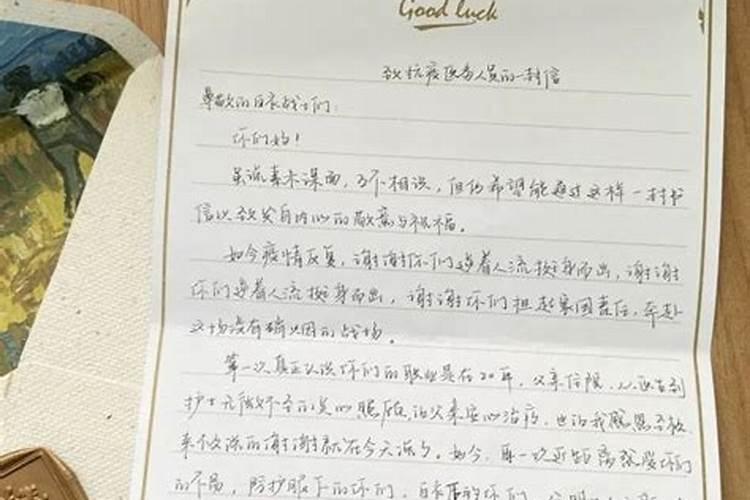 Good luck
致抗疫医务人员的一封信
尊敬的白衣战士们：
你们好！
虽说素未谋面，互不相识，但仍希望能通过这样一封书
信以致发自内心的敬意与祝福。
如今疫情反复，谢谢你们逆着人流挺身而出，谢谢
你们逆着人流挺身而出，谢谢你们担起家国责任，奔赴
这场没有硝烟的战场。
第一次真正认识你们的职业是在20年，父亲住院，
护士无微不至的 照顾，让父亲安心治疗，也让我
来不及说的谢谢就在今天说与。如今，再一次近距离 你们
的不易，防护服下的你们，